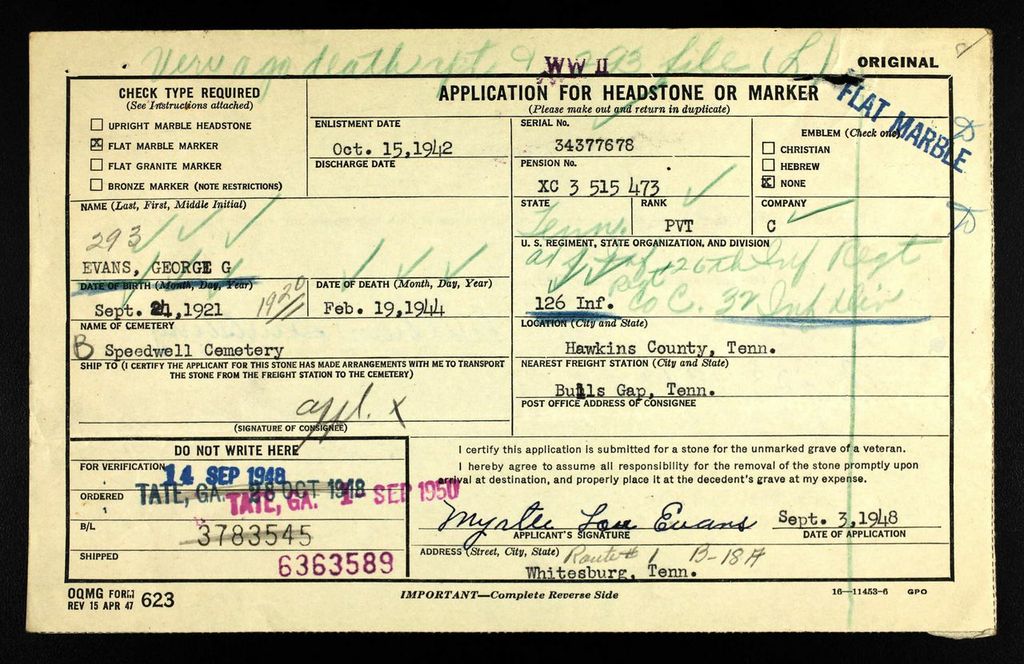 Very a no death rpt 293 file (L)
WW II
ORIGINAL
CHECK TYPE REQUIRED
(See Instructions attached)
UPRIGHT MARBLE HEADSTONE
FLAT MARBLE MARKER
FLAT GRANITE MARKER
BRONZE MARKER (NOTE RESTRICTIONS)
APPLICATION FOR HEADSTONE OR MARKER
(Please make out and return in duplicate)
FLAT MARBLE
ENLISTMENT DATE
Oct. 15,1942
DISCHARGE DATE
SERIAL No.
34377678
PENSION No.
XC 3 515 473
EMBLEM (Check one)
CHRISTIAN
HEBREW
NONE
NAME (Last, First, Middle Initial)
293
EVANS, GEORGE G
STATE
Tenn.
RANK
PVT
COMPANY
C
U. S. REGIMENT, STATE ORGANIZATION, AND DIVISION
126th Inf Regt
126 Inf. Regt Co C. 32 Inf Div
DATE OF BIRTH (Month, Day, Year)
Sept. 21,1921 1920
DATE OF DEATH (Month, Day, Year)
Feb. 19,1944
NAME OF CEMETERY
B Speedwell Cemetery
LOCATION (City and State)
Hawkins County, Tenn.
SHIP TO (I CERTIFY THE APPLICANT FOR THIS STONE HAS MADE ARRANGEMENTS WITH ME TO TRANSPORT
THE STONE FROM THE FREIGHT STATION TO THE CEMETERY)
appl. X
(SIGNATURE OF CONSIGNEE)
NEAREST FREIGHT STATION (City and State)
Bulls Gap, Tenn.
POST OFFICE ADDRESS OF CONSIGNEE
DO NOT WRITE HERE
FOR VERIFICATION
14 SEP 1948
ORDERED
TATE, GA. 28 OCT 1948
TATE, GA. 1 SEP 1950
B/L
3783545
SHIPPED
6363589
I certify this application is submitted for a stone for the unmarked grave of a veteran.
I hereby agree to assume all responsibility for the removal of the stone promptly upon
arrival at destination, and properly place it at the decedent's grave at my expense.
Myrtle Lou Evans Sept. 3,1948
APPLICANT'S SIGNATURE DATE OF APPLICATION
ADDRESS (Street, City, State) Route # 1 B-18A
Whitesburg, Tenn.
OQMG FORM
REV 15 APR 47 623
IMPORTANT—Complete Reverse Side
16—11453-6 GPO